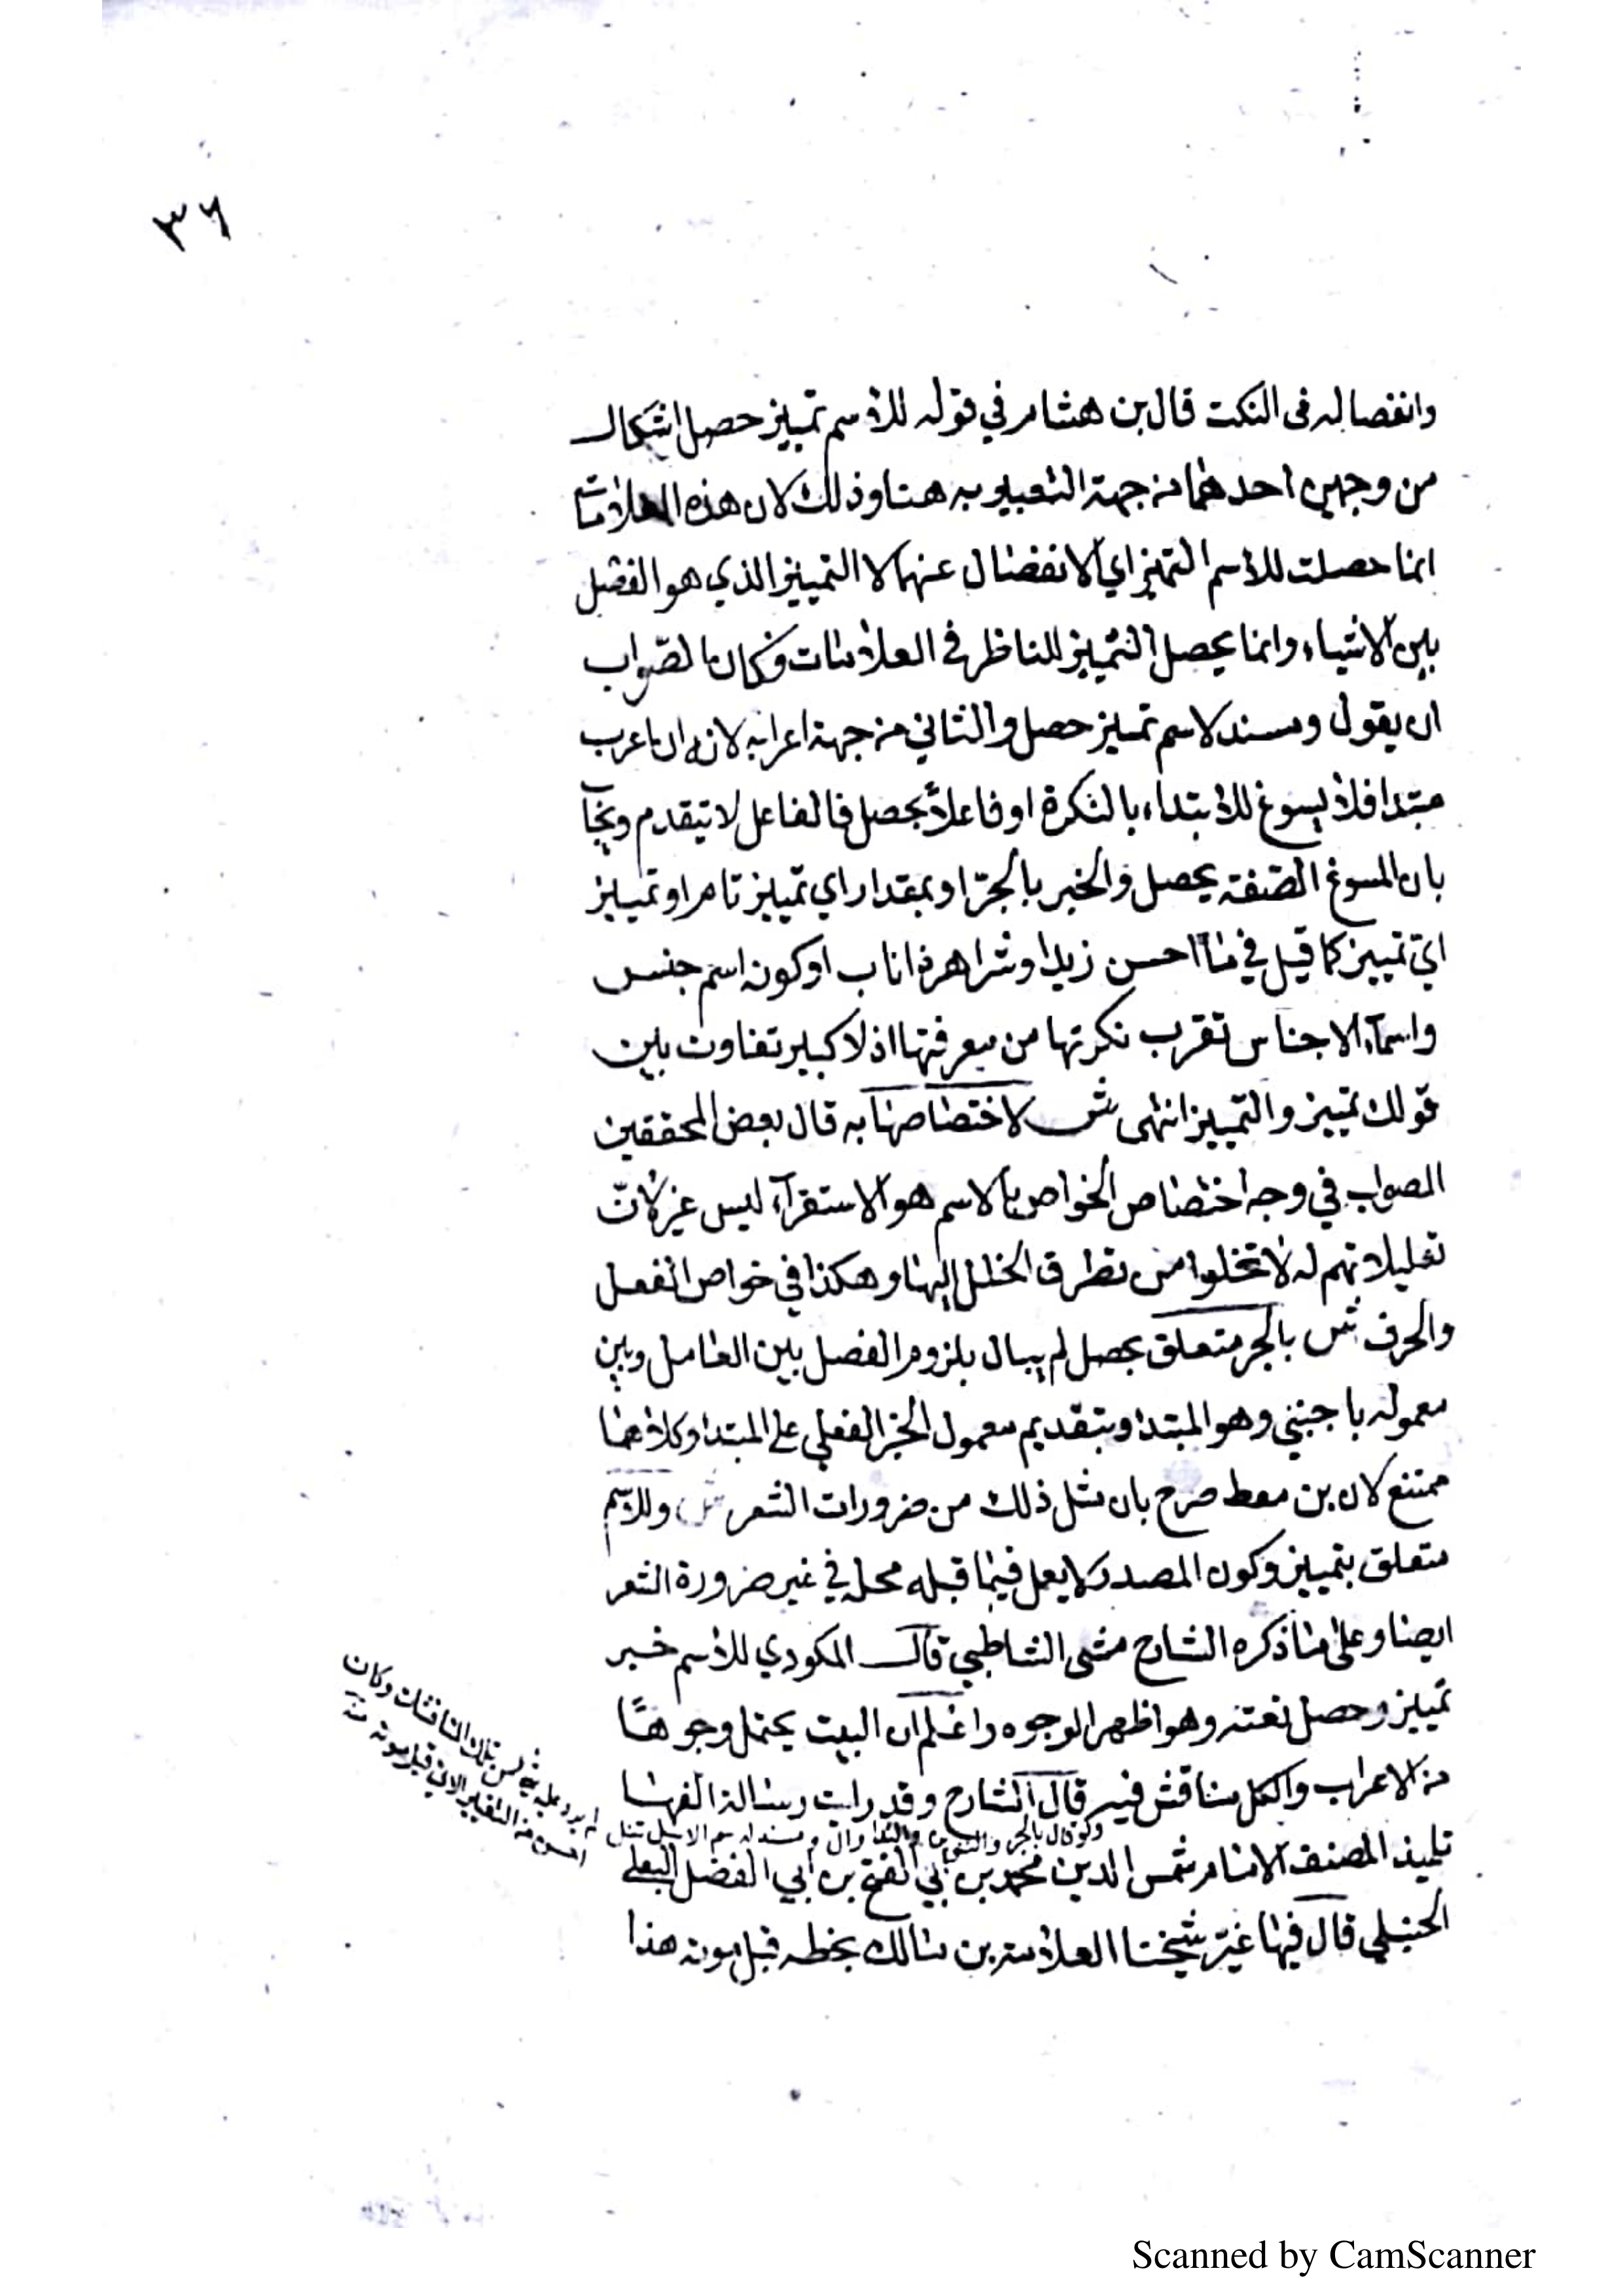 ٣٦
وانفصاله فى النكت قال بن هشام في قوله للاسم تمييز حصل اشكال
من وجهين احدهما من جهة التعبير به هنا وذلك لان هذه العلامات
انما حصلت للاسم التميز اي الانفصال عنهما لا التمييز الذي هو الفصل
بين الاشياء وانما يحصل التمييز للناظر في العلامات فكان الصواب
ان يقول ومسند لاسم تمييز حصل والثاني من جهة اعرابه لانه ان اعرب
مبتدا فلا يسوغ للابتداء بالنكرة او فاعلاً بحصل فالفاعل لا يتقدم ويجاب
بان المسوغ الصفة بحصل والخبر بالجرّ او بمقدار اي تمييز تام او تمييز
ايّ تمييز كما قيل في ما احسن زيدا وشر اهر ذا ناب او كونه اسم جنس
واسماء الاجناس تقرب نكرتها من معرفتها اذ لا كبير تفاوت بين
قولك تمييز والتمييز انتهى ش لاختصاصها به قال بعض المحققين
الصواب في وجه اختصاص الخواص بالاسم هو الاستقراء ليس غير لانّ
تعليلاتهم له لا تخلوا من تطرق الخلل اليها وهكذا في خواص الفعل
والحرف ش بالجر متعلق بحصل لم يبال بلزوم الفصل بين العامل وبين
معموله باجنبي وهو المبتدا وبتقديم معمول الخبر الفعلي على المبتدا وكلاهما
ممتنع لان بن معط صرح بان مثل ذلك من ضرورات الشعر ش وللاسم
متعلق بتمييز وكون المصدر لا يعمل فيما قبله محله في غير ضرورة الشعر
ايضا وعلى ما ذكره الشارح مشى الشاطبي قال المكودي للاسم خبر
تمييز وحصل نعته وهو اظهر الوجوه واعلم ان البيت يحتمل وجوهًا
من الاعراب والكل مناقش فيه قال الشارح وقد رايت رسالة الفها
ولو قال بالجر والتنوين والندا وال ومسند له سم الاسم تنل
لم يرد عليه شي من تلك المناقشات وكان
احسن من التغيير الاتي قبل موته منه
تلميذ المصنف الامام شمس الدين محمد بن ابي الفتح بن ابي الفضل البعلي
الحنبلي قال فيها غيّر شيخنا العلامة بن مالك بخطه قبل موته هذا
Scanned by CamScanner